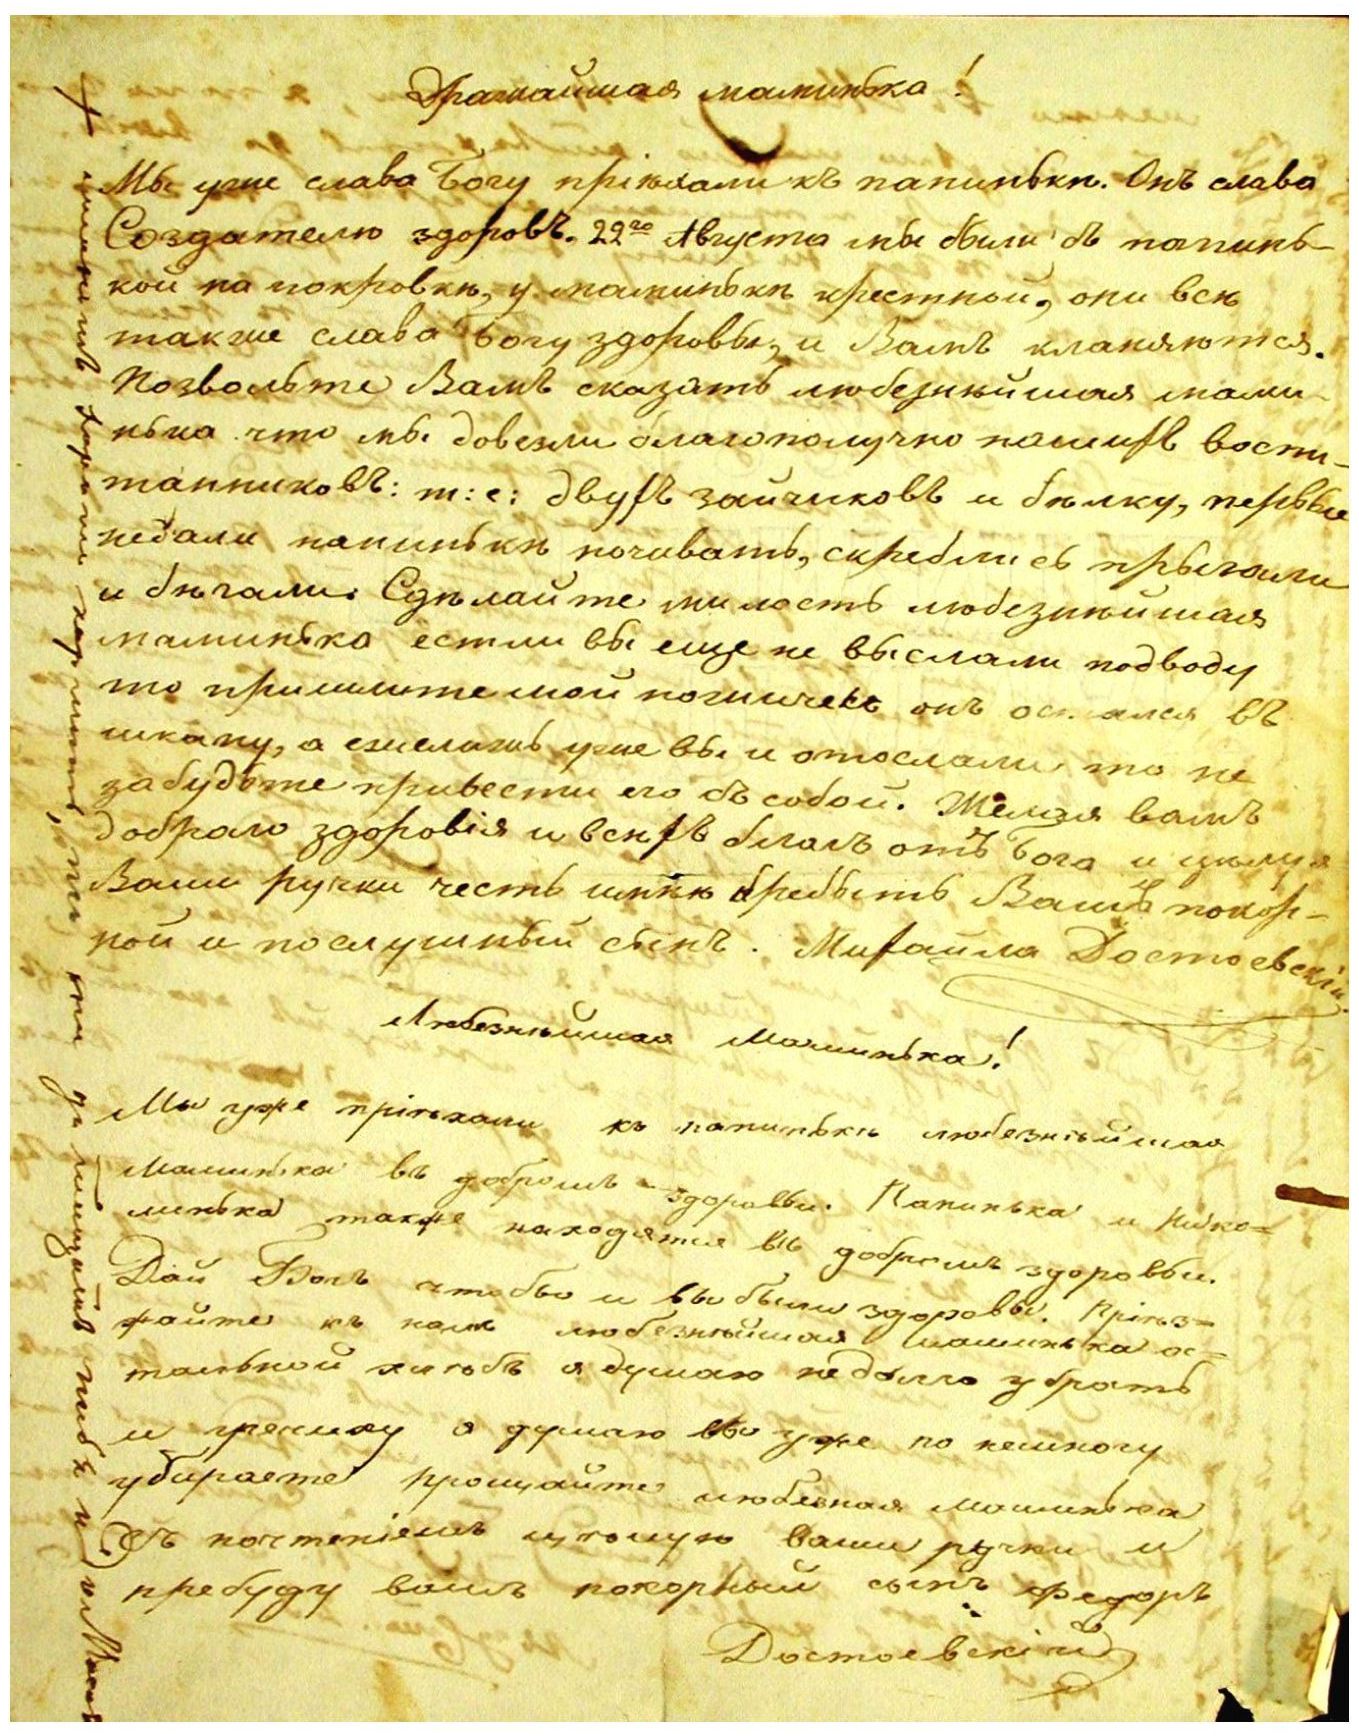 Дражайшая маминька!
Мы уже слава Богу пріѣхали къ папинькѣ. Онъ слава
Создателю здоровъ. 22го Августа мы были съ папинь-
кой на покровкѣ, у маминьки крестной, они всѣ
также слава Богу здоровы, и Вамъ кланяются.
Позвольте Вамъ сказать любезнѣйшая мами-
нька что мы довезли благополучно нашихъ воспи-
танниковъ: т: е: двухъ зайчиковъ и бѣлку, первые
недали папинькѣ почивать, скреблись прыгали
и бѣгали. Сдѣлайте милость любезнѣйшая
маминька естли вы еще не выслали подводу
то пришлите мой ножичекъ онъ остался въ
шкапу, а ежелижъ уже вы и отослали то не
забудьте привести его съ собой. Желая вамъ
добраго здоровія и всѣхъ благъ отъ Бога и цѣлуя
Ваши ручки честь имѣю пребыть Вашъ покор-
ной и послушный сынъ. Михайла Достоевскій.
Любезнѣйшая Маминька!
Мы уже пріѣхали къ папинькѣ любезнѣйшая
Маминька въ добромъ здоровьи. Папинька и Нико-
линька также находятся въ добромъ здоровьи.
Дай Богъ чтобы и вы были здоровы. Пріѣз-
жайте къ намъ любезнѣйшая маминька ос-
тальной хлѣбъ я думаю недолго убрать
и гречиху я думаю вы уже по немногу
убираете прощайте любезная маминька
съ почтеніемъ цѣлую ваши ручки и
пребуду вашъ покорный сынъ Федоръ
Достоевскій